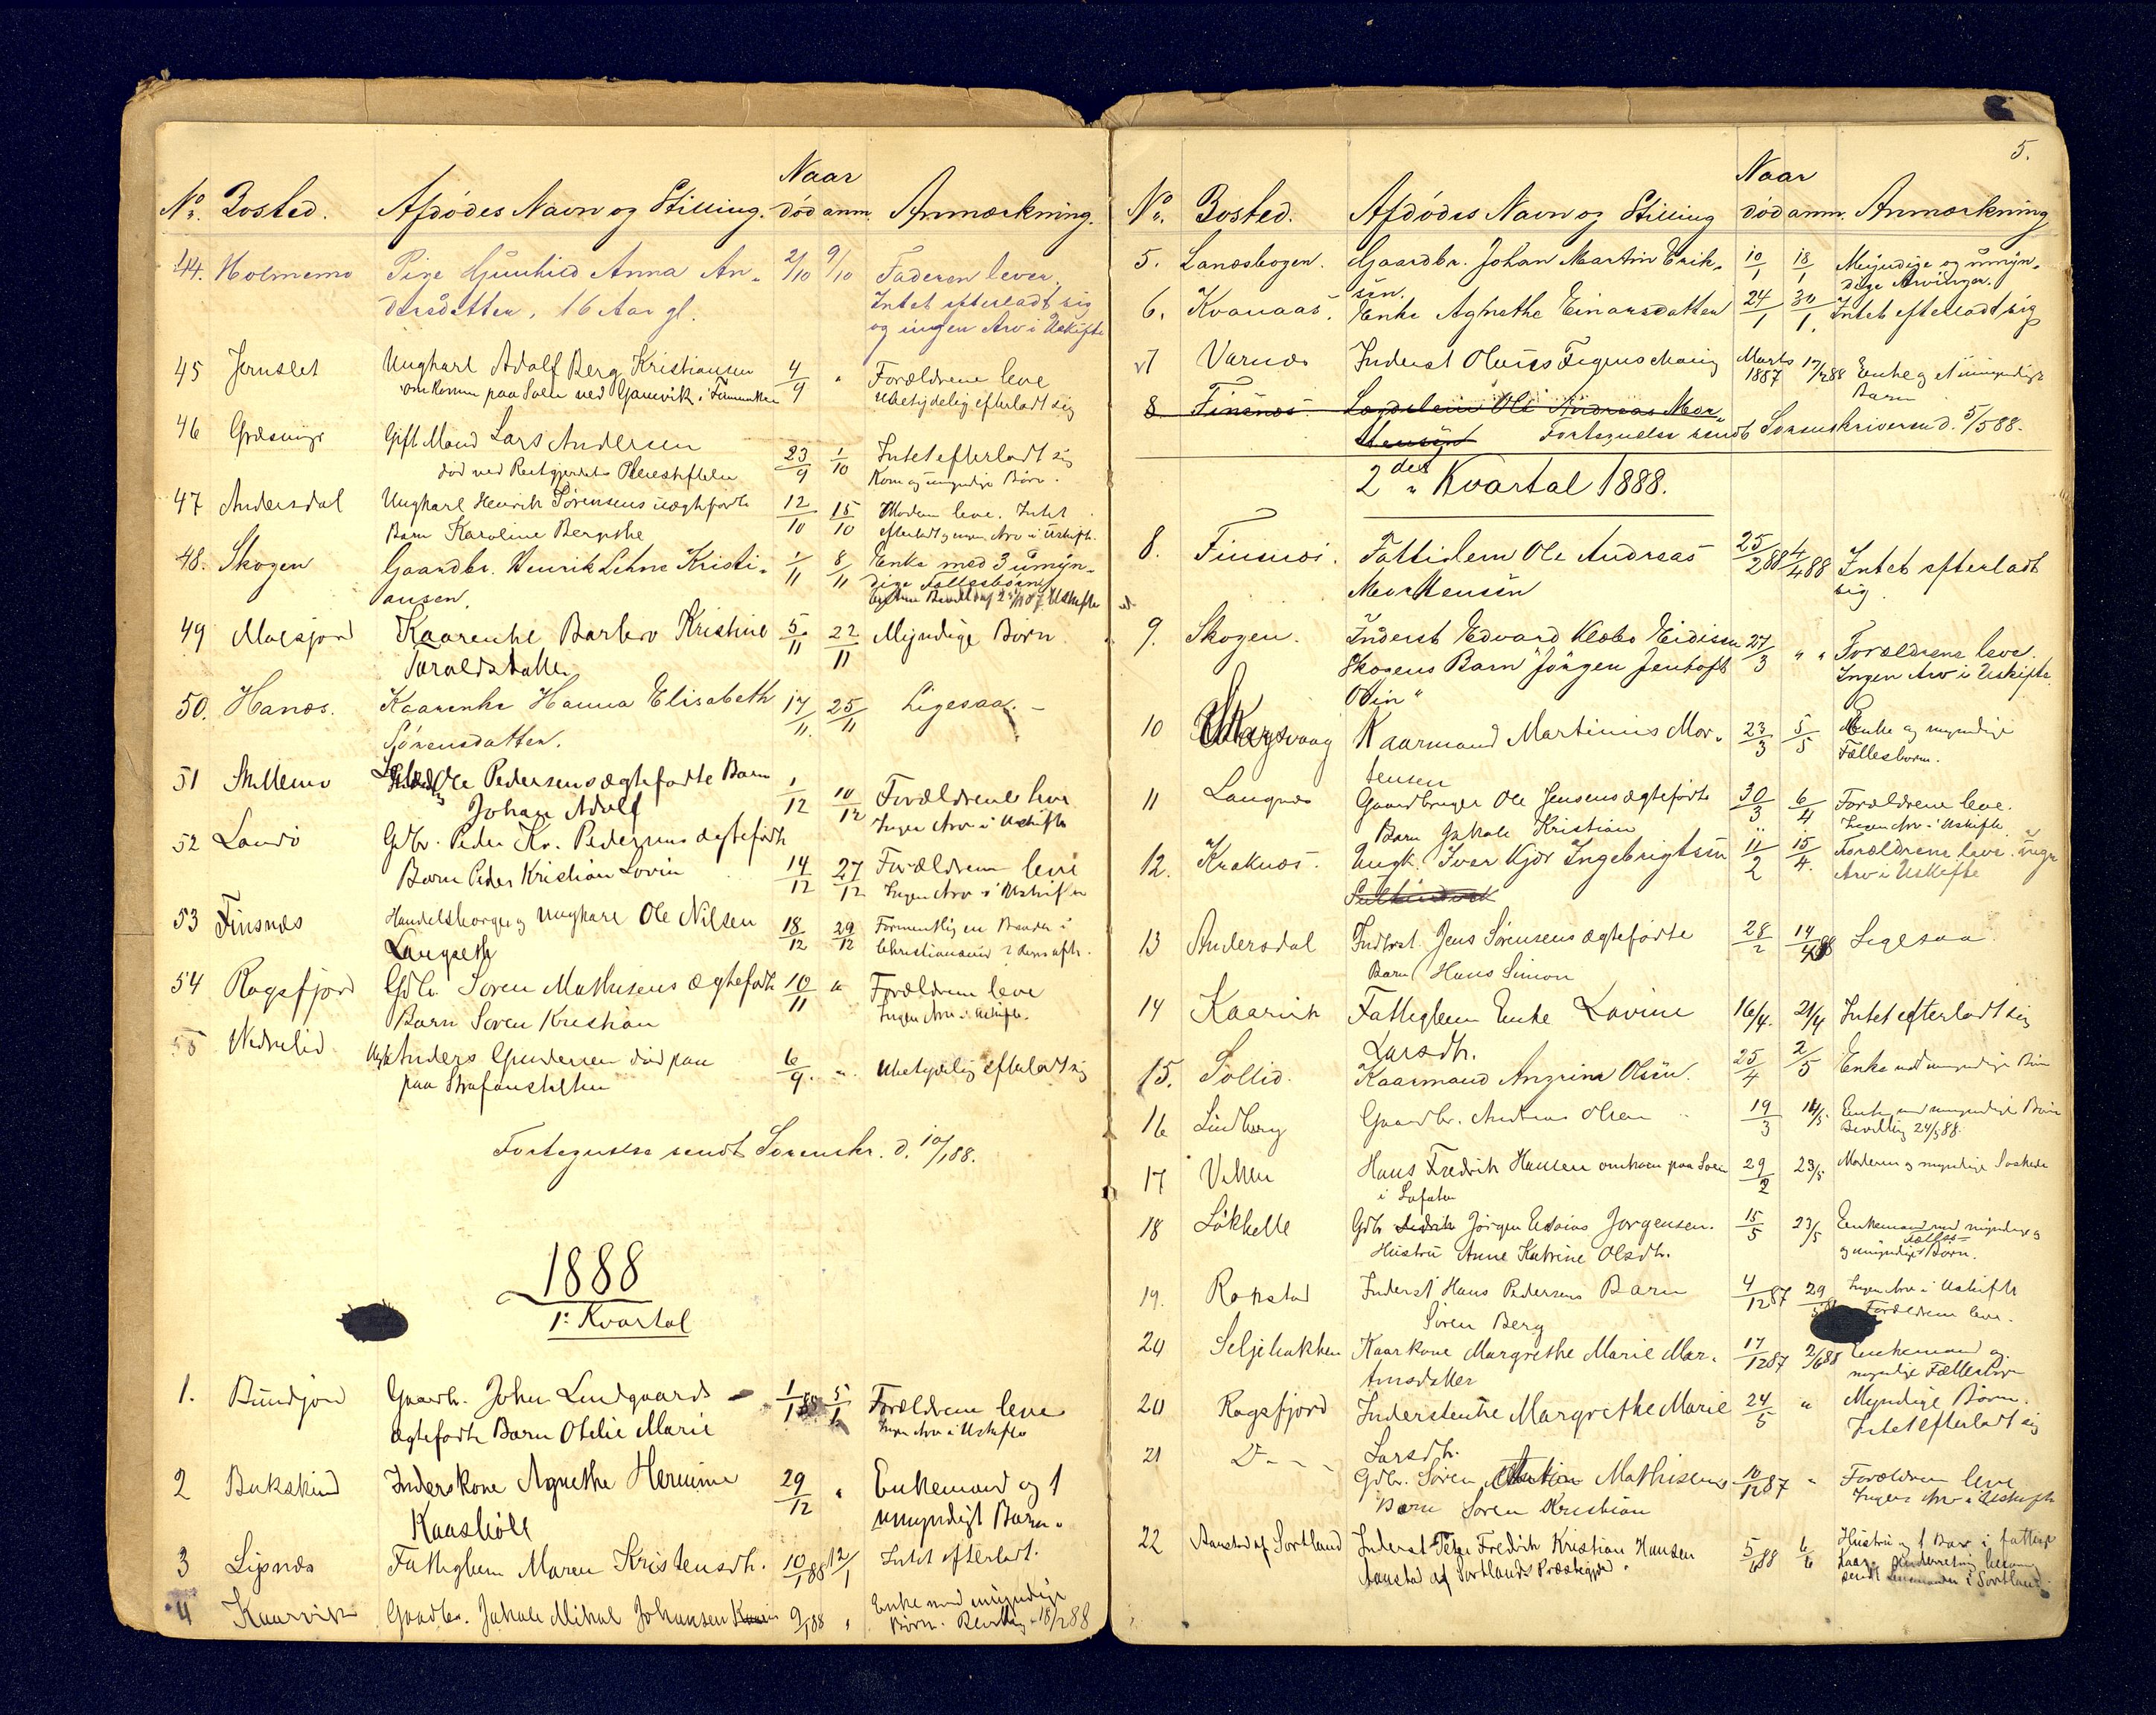 Naar
No. Bosted. Afdödes Navn og Stilling. död anm. Anmærkning.
44. Holmemo Pige Gunhild Anna An- 2/10 9/10 Faderen lever.
dersdatter, 16 Aar gl. Intet efterladt sig
og ingen Arv i Uskifte
45 Jernslet Ungkarl Adolf Berg Kristiansen 4/9 " Forældrene leve
omkommen paa Søen ved Gamvik i Finmarken Ubetydelig efterladt sig
46 Gift Mand Lars Andersen 23/9 1/10 Intet efterladt sig
død ved Kone og umyndige Børn.
47 Andersdal Ungkarl Henrik Sørensens uægtefødte 12/10 15/10 Moderen leve. Intet
Barn Karoline Bergithe efterladt og ingen Arv i Uskifte.
48. Skogen Gaardbr. Henrik Lehne Kristi- 1/11 8/11 Enke med 3 umyn-
ansen. dige Fællesbørn
Uskifte
49 Malesjord Kaarenke Barbro Kristine 5/11 22/11 Myndige Børn.
Taraldsdatter
50. Hanæs. Kaarenke Hanna Elisabeth 17/11 25/11 Ligesaa. –
Sørensdatter.
51 Stillemo Ole Pedersens ægtefødte Barn 1/12 10/12 Forældrene leve
Johan Adolf Ingen Arv i Uskifte
52 Landö Gdbr. Peder Kr. Pedersens ægtefødte
Barn Peder Kristian Lovin 14/12 27/12 Forældrene leve
Ingen Arv i Uskifte
53 Finsnæs Handelsborger og Ungkarl Ole Nilsen 18/12 29/12 Formentlig en Broder i
Langseth Christiansund
54 Rogsfjord Gdbr. Søren Mathisens ægtefødte 10/11 " Forældrene leve
Barn Søren Kristian Ingen Arv i Uskifte.
55 Nedrelid Ungk Anders død paa 6/9. " Ubetydelig efterladt sig
paa Strafanstalten
Fortegnelse sendt Sorenskr. d. 10/1 88.
1888
1: Kvartal
1. Bundjord Gaardb. John Lindgaards 1/1 88 5/1 Forældrene leve
ægtefødte Barn Otelie Marie Ingen Arv i Uskifte
2 Bukskind Inderskone Agnethe Hermine 29/12 " Enkemand og 1
Kaashöll umyndigt Barn.
3 Lysnæs Fattiglem Maren Kristensdtr. 10/1 88 12/1 Intet efterladt.
4 Kaarvik Gaardbr. Jakob Mikal Johansen 9/1 88 " Enke med umyndige
Børn. Bevilling 18/2 88
5.
Naar
No. Bosted. Afdödes Navn og Stilling död anm. Anmærkning
5. Lanesbogen. Gaardbr. Johan Martin Erik- 10/1 18/1 Myndige og umyn-
sen. dige Arvinger.
6. Kvanaas. Enke Agnethe Einarsdatter 24/1 30/1. Intet efterladt sig
7 Varnæs Inderst Marts 1887 Enke og et umyndigt
Barn
8 Finsnes Ole Andreas Mor-
tensen Fortegnelse sendt Sorenskriveren d. 5/5 88.
2det Kvartal 1888.
8. Finsnæs. Fattiglem Ole Andreas 25/2 88 4/4 88 Intet efterladt
Mortensen sig
9. Skogen. Inderst Edvard Klæbo Eidissen 27/3 " " Forældrene leve.
Skogens Barn "Jörgen Jentoft Ingen Arv i Uskifte.
Odin"
10 Kaarmand Martinus Mor- 23/3 5/5 Enke og myndige
tensen Fællesbørn.
11 Langnæs Gaardbruger Ole Jensens ægtefødte 30/3 6/4 Forældrene leve.
Barn Jakob Kristian Ingen Arv i Uskifte.
12. Kraknæs. Ungk. Iver Kjær Ingebrigtsen 11/2 15/4. Forældrene leve. ingen
Arv i Uskifte
13 Andersdal Inderst Jens Sørensens ægtefødte 28/2 14/4 88 Ligesaa
Barn Hans Simon
14 Kaarvik Fattiglem Enke Lovine 16/4. 21/4 Intet efterladt sig
Larsdtr.
15. Sollid. Kaarmand Angrim Olsen. 25/4 2/5 Enke med umyndige Børn
16 Lindberg Gaardbr. Andreas Olsen 19/3 14/5. Enke med umyndige Børn
Bevilling 24/5 88.
17 Hans Fredrik Hansen omkom paa Søen 29/2 23/5 Moderen og myndige Søskende
i Lofoten
18 Lökkelle Gdbr Jörgen Esaias Jorgensen. 15/5 23/5 Enkemand med myndige og
Hustru Anne Katrine Olsdtr. umyndige Fælles- Børn.
19. Rokstad Inderst Hans Pedersens Barn 4/12 87 29/5 Ingen Arv i Uskifte
Søren Berg Forældrene leve.
20 Seljebakken Kaarkone Margrethe Marie Mar- 17/12 87 2/6 88 Enkemand og
tinsdatter myndige Fællesbørn
20 Rogsfjord Inderstenke Margrethe Marie 24/5 " Myndige Børn.
Larsdtr. Intet efterladt sig
21 D - - Gdbr. Søren Mathisens 10/12 87 " Forældrene leve
Barn Søren Kristian Ingen Arv i Uskifte
22 Aanstad af Sortland Inderst Peter Fredrik Kristian Hansen 5/1 88 6/6 Hustru og 1 Barn i fattige
Aanstad af Sortlands Præstegjeld. Kaar. Underretning herom
sendt Lensmanden i Sortland.